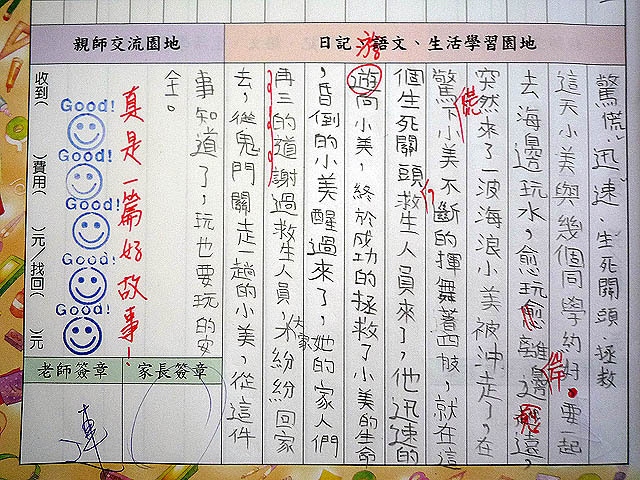 日記、語文、生活學習園地
游
驚慌、迅速、生死關頭、拯救
這天小美與幾個同學約好，要一起
去海邊玩水，愈玩愈離邊愈遠，
岸
突然來了一波海浪小美被沖走了，在
驚下小美不斷的揮舞著四肢，就在這
慌
個生死關頭救生人員來了，他迅速的
遊向小美，終於成功的拯救了小美的生命
，昏倒的小美醒過來了，她的家人們
再三的道謝過救生人員，才紛紛回家
大家
去，從鬼門關走一趟的小美，從這件
事知道了，玩也要玩的安
全。
親師交流園地
真是一篇好故事！
Good!
Good!
Good!
Good!
Good!
收到( )費用( )元/找回( )元
家長簽章
老師簽章